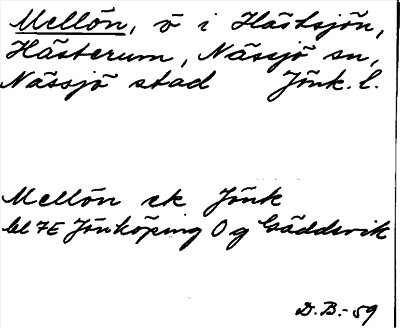 Mellön, ö i Hästsjön,
Hästerum, Nässjö sn,
Nässjö stad Jönk. l.
Mellön ek Jönk
bl 7E Jönköping O g Gäddevik
D.B.-59